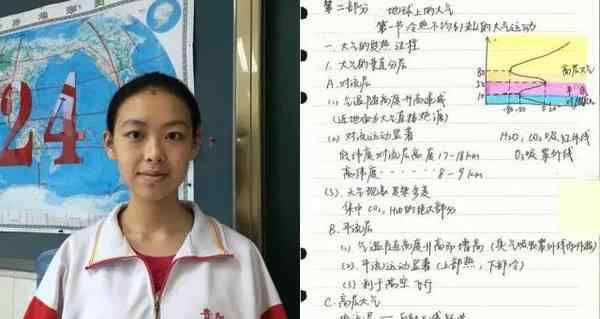 24
第二部分 地球上的大气
第一节 冷热不均引起的大气运动
一、大气的受热过程
1. 大气的垂直分层
高层大气
80
50
10
A. 对流层
(1) 气温随高度升高递减
(近地面为大气直接热源)
(2) 对流运动显著
H₂O, CO₂吸红外线
O₃吸紫外线
低纬度对流层高度17-18km
高纬度······8-9km
(3). 天气现象复杂多变
集中CO₂, H₂O的绝大部分
B. 平流层
(1) 气温随高度升高而增高 (臭气吸收紫外线而升温)
(2). 平流运动显著 (上部热, 下部冷)
(3) 利于高空飞行
C. 高层大气